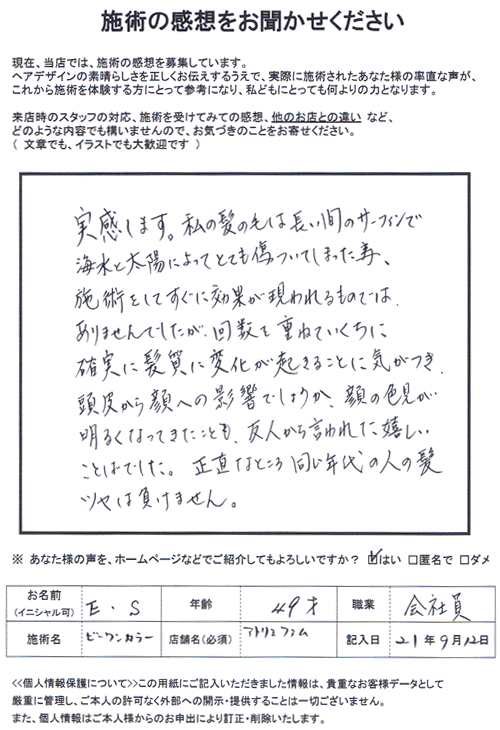 施術の感想をお聞かせください
現在、当店では、施術の感想を募集しています。
ヘアデザインの素晴らしさを正しくお伝えするうえで、実際に施術されたあなた様の率直な声が、
これから施術を体験する方にとって参考になり、私どもにとっても何よりの力となります。
来店時のスタッフの対応、施術を受けてみての感想、他のお店との違い など、
どのような内容でも構いませんので、お気づきのことをお寄せください。
( 文章でも、イラストでも大歓迎です )
実感します。私の髪の毛は長い間のサーフィンで
海水と太陽によってとても傷ついてしまった事、
施術をしてすぐに効果が現われるものでは、
ありませんでしたが、回数を重ねていくちに
確実に髪質に変化が起きることに気がつき、
頭皮から顔への影響でしょうか、顔の色見が
明るくなってきたことも、友人から言われた嬉しい
ことばでした。 正直なところ同じ年代の人の髪
ツヤは負けません。
※ あなた様の声を、ホームページなどでご紹介してもよろしいですか? ☑はい □匿名で □ダメ
お名前 (イニシャル可) E・S 年齢 49才 職業 会社員
施術名 ビーワンカラー 店舗名(必須) アトリエファム 記入日 21年9月12日
<<個人情報保護について>>この用紙にご記入いただきました情報は、貴重なお客様データとして
厳重に管理し、ご本人の許可なく外部への開示・提供することは一切ございません。
また、個人情報はご本人様からのお申出により訂正・削除いたします。